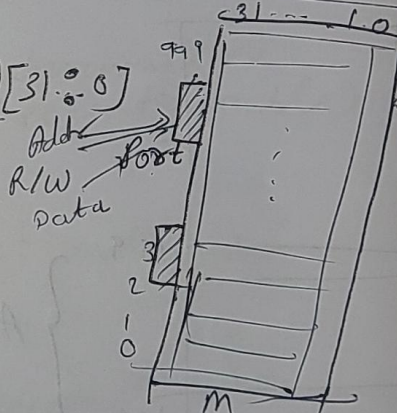 31 ---- 1 0
999
[31:0]
Add
Port
R/W
Data
3
2
1
0
M